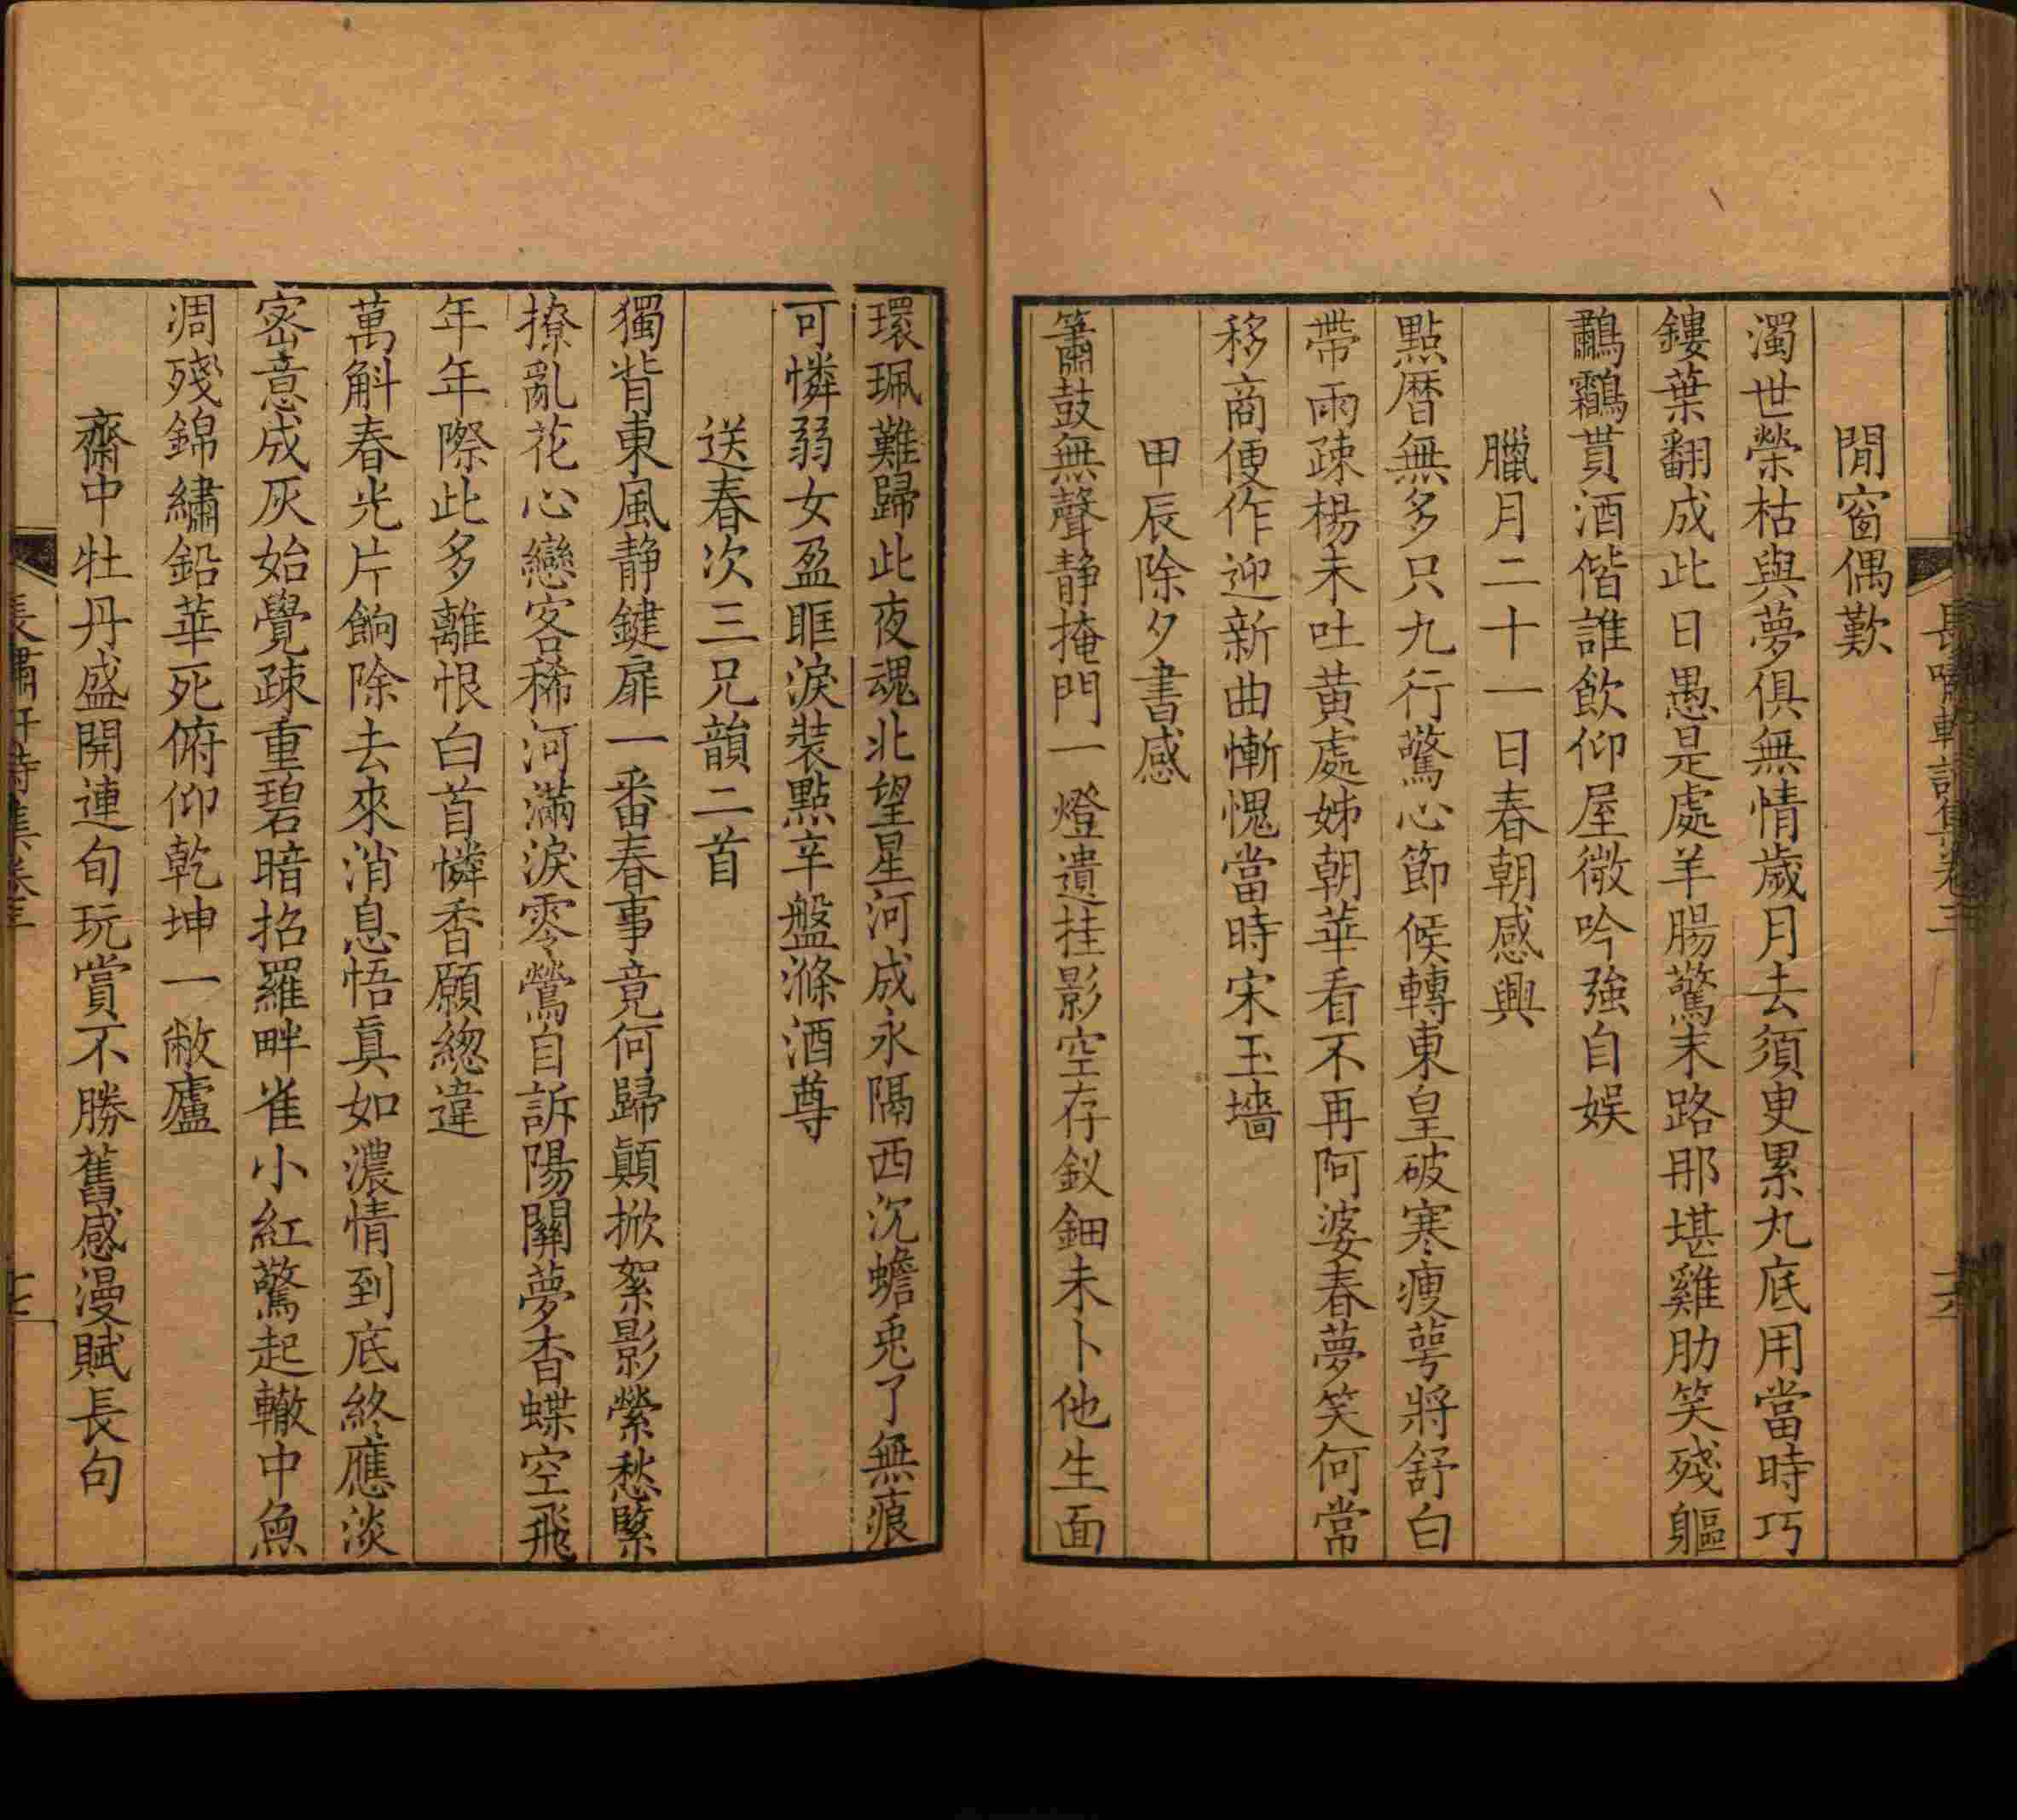 長嘯軒詩集卷三
六
閒窗偶歎
濁世榮枯與夢俱無情歲月去須臾累丸底用當時巧
鏤葉翻成此日愚是處羊腸驚末路那堪雞肋笑殘軀
鸘貰酒偕誰飲仰屋微吟強自娛
臘月二十一日春朝感興
點曆無多只九行驚心節候轉東皇破寒瘦萼將舒白
帶雨疎楊未吐黃處姊朝華看不再阿婆春夢笑何常
移商便作迎新曲慚愧當時宋玉墻
甲辰除夕書感
簫鼓無聲静掩門一燈遺挂影空存釵鈿未卜他生面
環珮難歸此夜魂北望星河成永隔西沉蟾兎了無痕
可憐弱女盈眶淚裝點辛盤滌酒尊
送春次三兄韻二首
獨背東風静鍵扉一番春事竟何歸顛掀絮影縈愁緊
撩亂花心戀客稀河滿淚零鶯自訴陽關夢杳蝶空飛
年年際此多離恨白首憐香願緫違
萬斛春光片餉除去來消息悟眞如濃情到底終應淡
密意成灰始覺疎重碧暗掐羅畔雀小紅驚起轍中魚
凋殘錦繡鉛華死俯仰乾坤一敝廬
齋中牡丹盛開連旬玩賞不勝舊感漫賦長句
長嘯軒詩集卷三
七